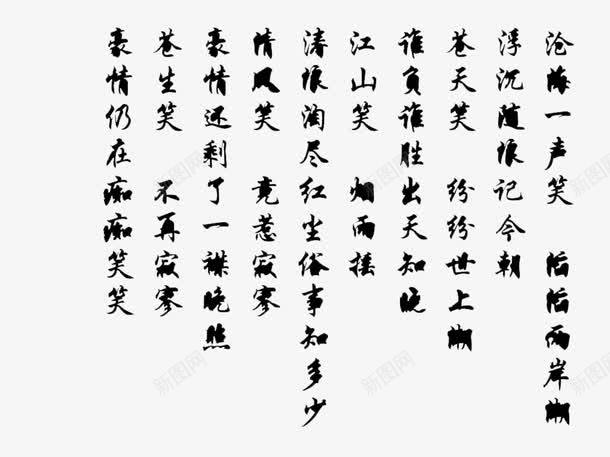 沧海一声笑 滔滔两岸潮
浮沉随浪记今朝
苍天笑 纷纷世上潮
谁负谁胜出天知晓
江山笑 烟雨摇
涛浪淘尽红尘俗事知多少
清风笑 竟惹寂寥
豪情还剩了一襟晚照
苍生笑 不再寂寥
豪情仍在痴痴笑笑
新图网